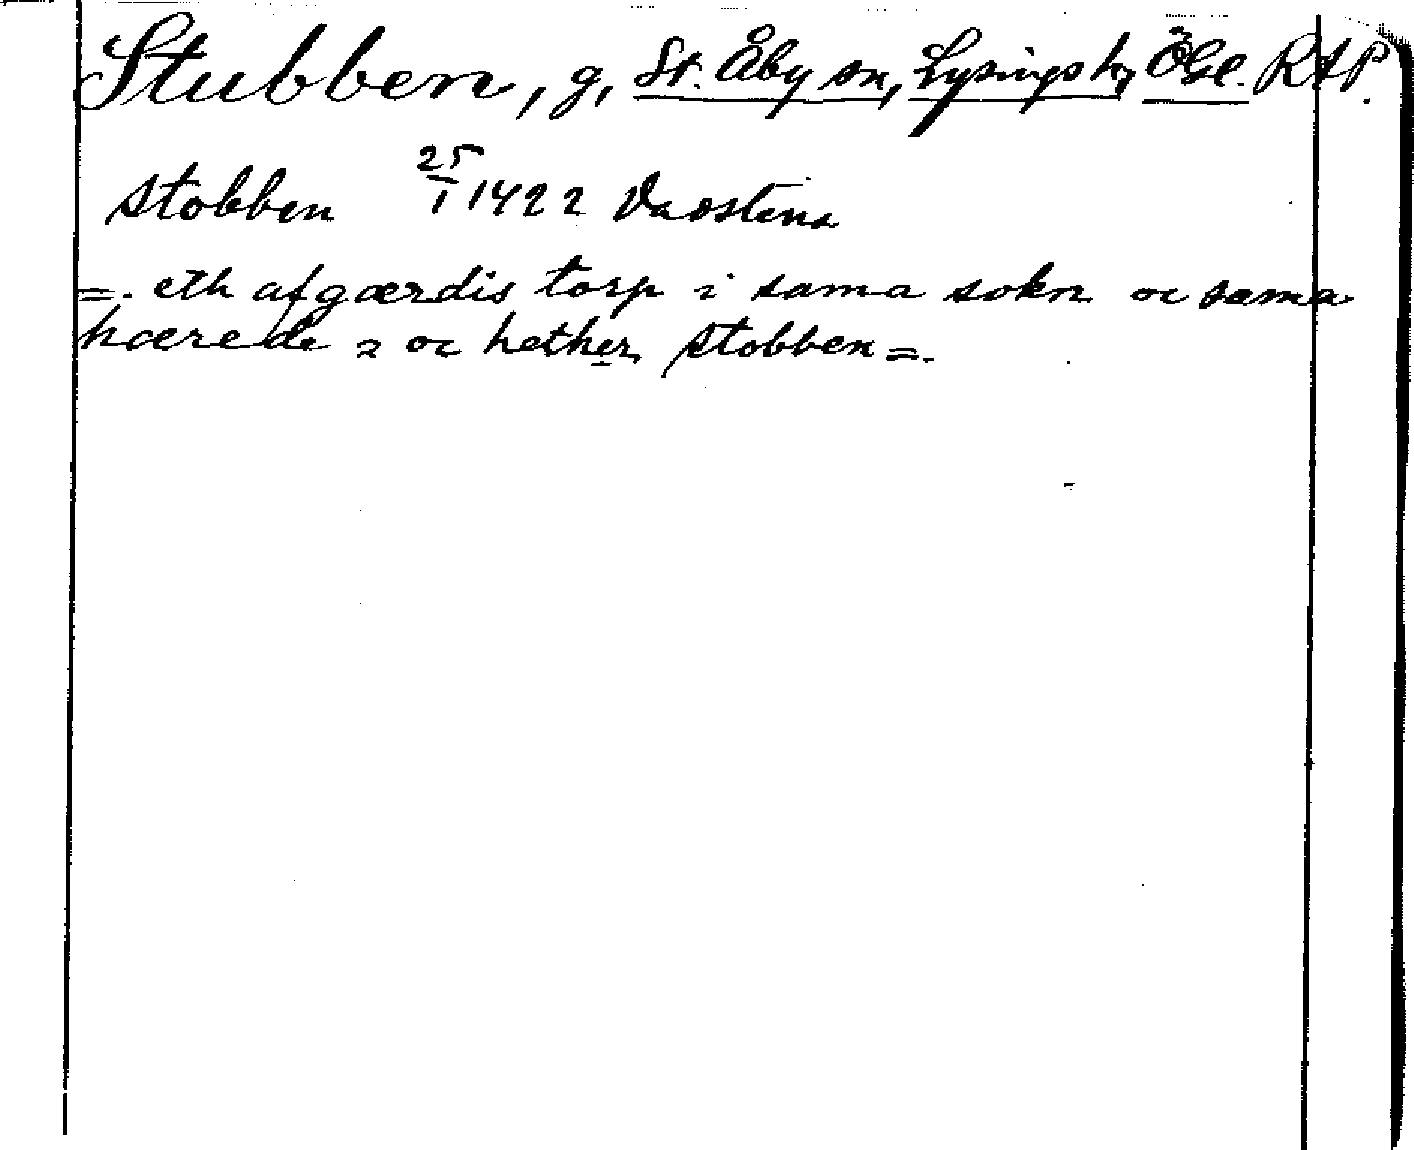 Stubben, g, St. Åby sn, Lysings h, Ögl. RAP.
stobben 25/1 1422 Vadstena
=. eth afgærdis torp i sama sokn oc sama
hærede 2 oc hether stobben =.